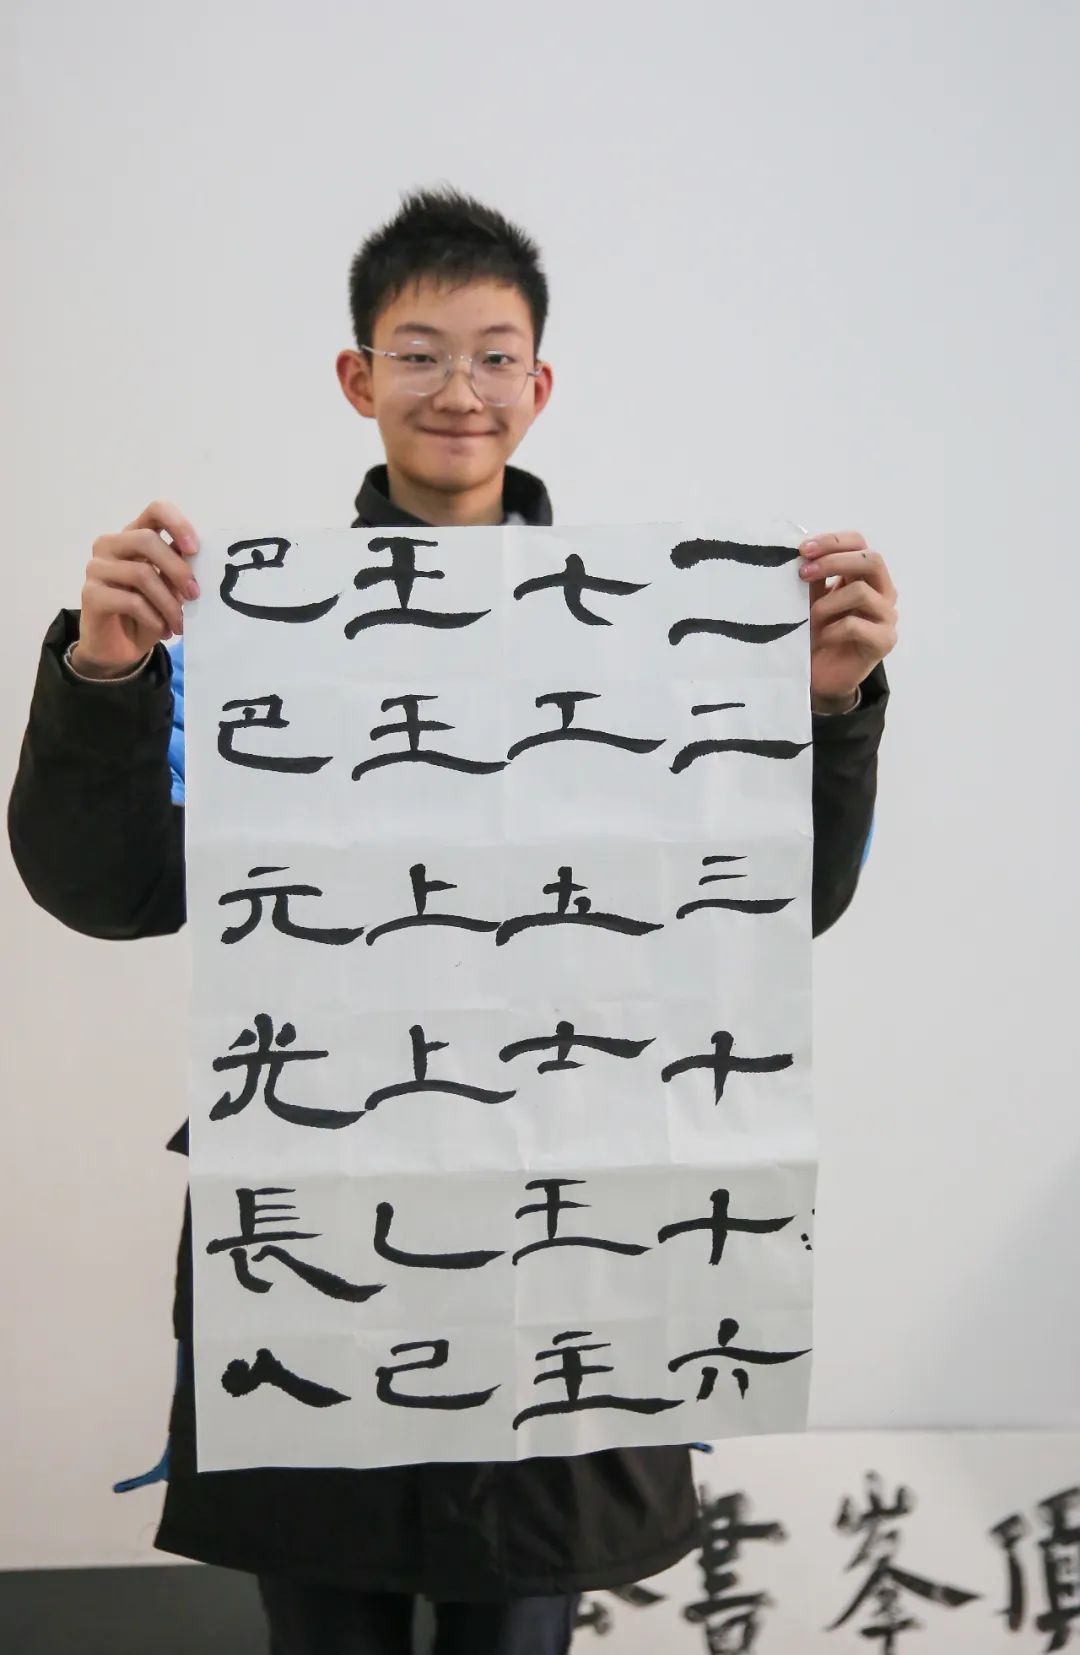 一一二三十十六
七工五士王主
王王上上乚己
巴巴元光長
頂峯書